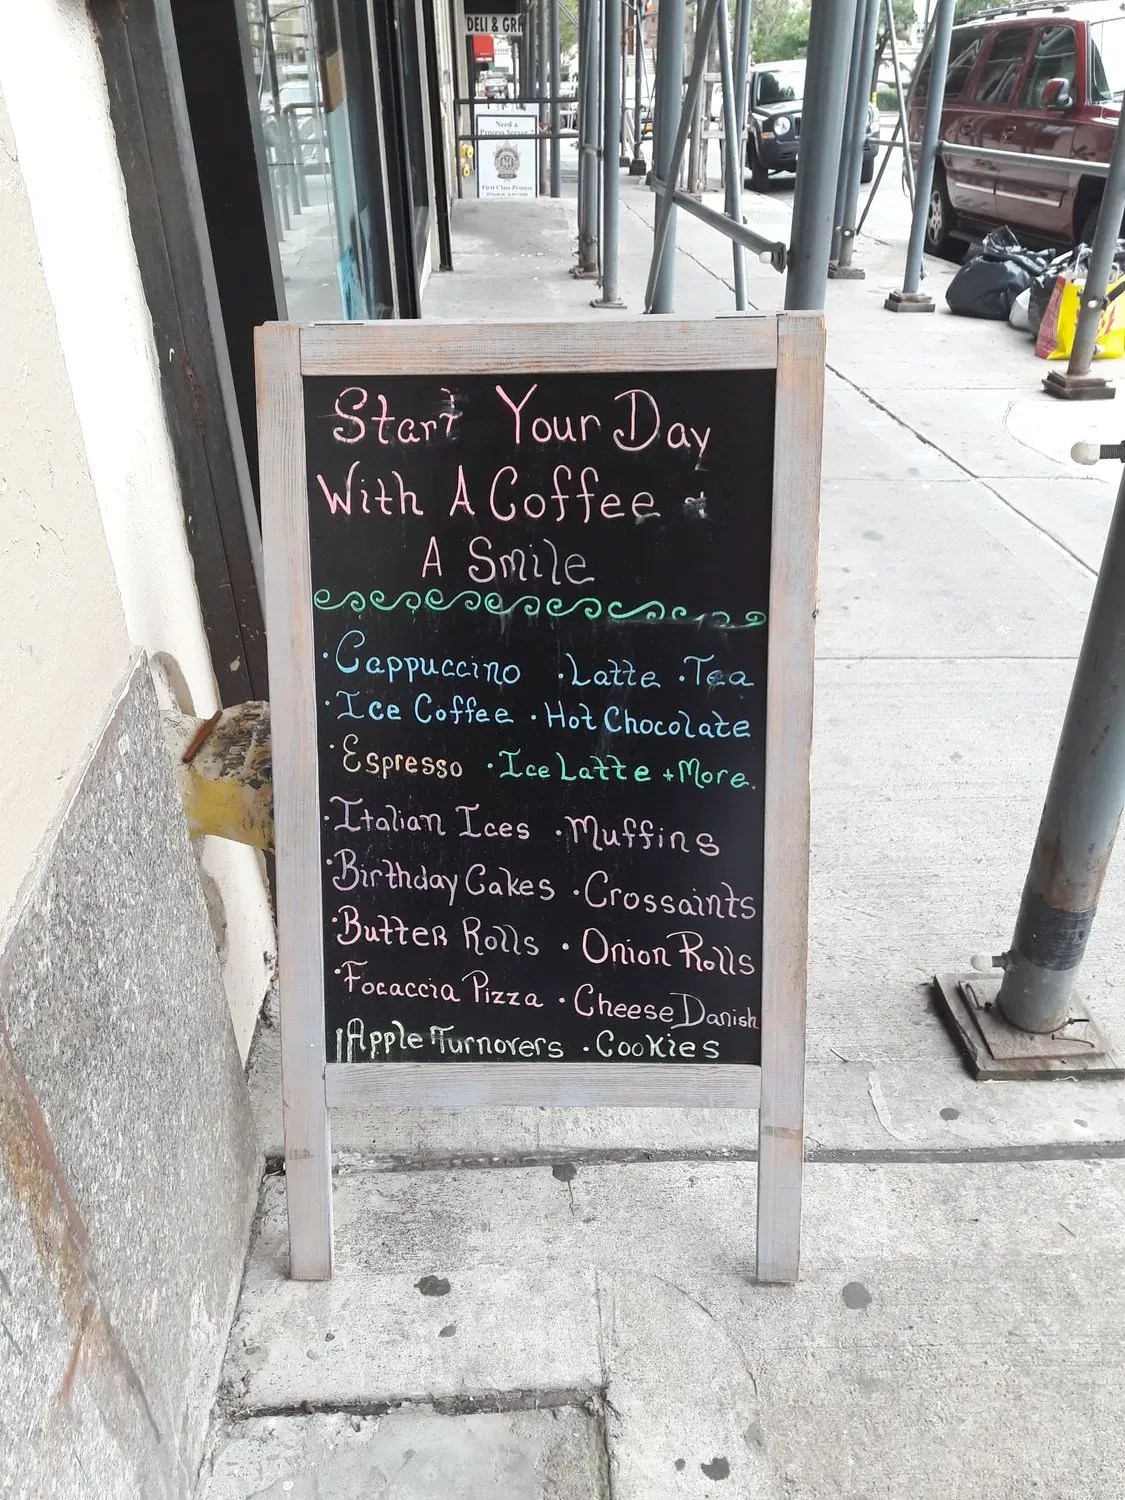 DELI & GR
Need a
Process Server?
First Class Process
Start Your Day
With A Coffee &
A Smile
·Cappuccino ·Latte ·Tea
·Ice Coffee ·Hot Chocolate
·Espresso ·Ice Latte + More.
·Italian Ices ·Muffins
·Birthday Cakes ·Crossaints
·Butter Rolls ·Onion Rolls
·Focaccia Pizza ·Cheese Danish
Apple Turnovers ·Cookies